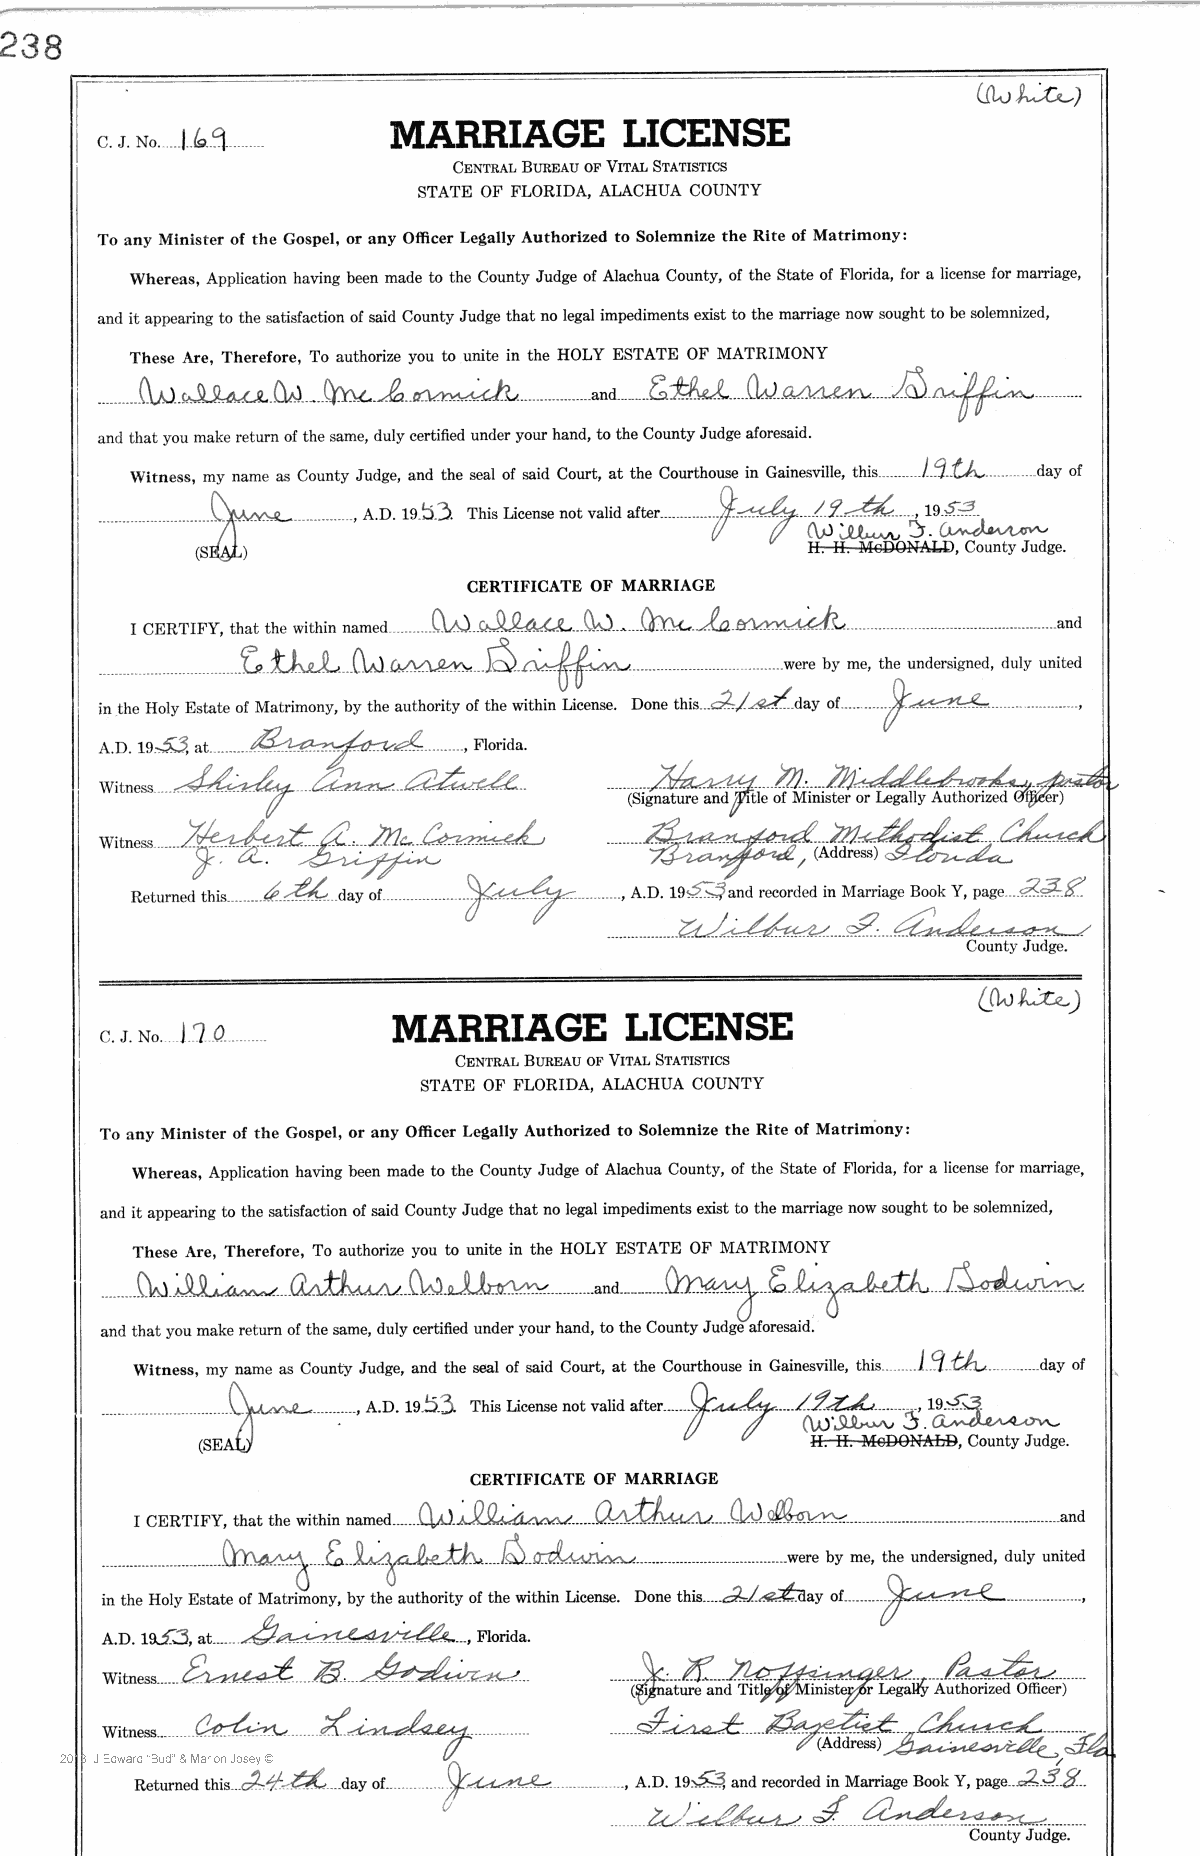 238
(White)
C. J. No. 169
MARRIAGE LICENSE
CENTRAL BUREAU OF VITAL STATISTICS
STATE OF FLORIDA, ALACHUA COUNTY
To any Minister of the Gospel, or any Officer Legally Authorized to Solemnize the Rite of Matrimony:
Whereas, Application having been made to the County Judge of Alachua County, of the State of Florida, for a license for marriage,
and it appearing to the satisfaction of said County Judge that no legal impediments exist to the marriage now sought to be solemnized,
These Are, Therefore, To authorize you to unite in the HOLY ESTATE OF MATRIMONY
Wallace W. McCormick and Ethel Warren Griffin
and that you make return of the same, duly certified under your hand, to the County Judge aforesaid.
Witness, my name as County Judge, and the seal of said Court, at the Courthouse in Gainesville, this 19th day of
June, A.D. 1953. This License not valid after July 19th, 1953
Wilbur F. Anderson
(SEAL) H. H. McDONALD, County Judge.
CERTIFICATE OF MARRIAGE
I CERTIFY, that the within named Wallace W. McCormick and
Ethel Warren Griffin were by me, the undersigned, duly united
in the Holy Estate of Matrimony, by the authority of the within License. Done this 21st day of June,
A.D. 1953, at Branford, Florida.
Witness Shirley Ann Atwell Harry M. Middlebrooks, pastor
(Signature and Title of Minister or Legally Authorized Officer)
Witness Herbert A. McCormick Branford Methodist Church
J. A. Griffin Branford, (Address) Florida
Returned this 6th day of July, A.D. 1953, and recorded in Marriage Book Y, page 238
Wilbur F. Anderson
County Judge.
(White)
C. J. No. 170
MARRIAGE LICENSE
CENTRAL BUREAU OF VITAL STATISTICS
STATE OF FLORIDA, ALACHUA COUNTY
To any Minister of the Gospel, or any Officer Legally Authorized to Solemnize the Rite of Matrimony:
Whereas, Application having been made to the County Judge of Alachua County, of the State of Florida, for a license for marriage,
and it appearing to the satisfaction of said County Judge that no legal impediments exist to the marriage now sought to be solemnized,
These Are, Therefore, To authorize you to unite in the HOLY ESTATE OF MATRIMONY
William Arthur Welborn and Mary Elizabeth Godwin
and that you make return of the same, duly certified under your hand, to the County Judge aforesaid.
Witness, my name as County Judge, and the seal of said Court, at the Courthouse in Gainesville, this 19th day of
June, A.D. 1953. This License not valid after July 19th, 1953
Wilbur F. Anderson
(SEAL) H. H. McDONALD, County Judge.
CERTIFICATE OF MARRIAGE
I CERTIFY, that the within named William Arthur Welborn and
Mary Elizabeth Godwin were by me, the undersigned, duly united
in the Holy Estate of Matrimony, by the authority of the within License. Done this 21st day of June,
A.D. 1953, at Gainesville, Florida.
Witness Ernest B. Godwin J. R. Noffsinger, Pastor
(Signature and Title of Minister or Legally Authorized Officer)
Witness Colin Lindsey First Baptist Church
(Address) Gainesville, Fla
2013 J Edward "Bud" & Marion Josey ©
Returned this 24th day of June, A.D. 1953, and recorded in Marriage Book Y, page 238
Wilbur F. Anderson
County Judge.